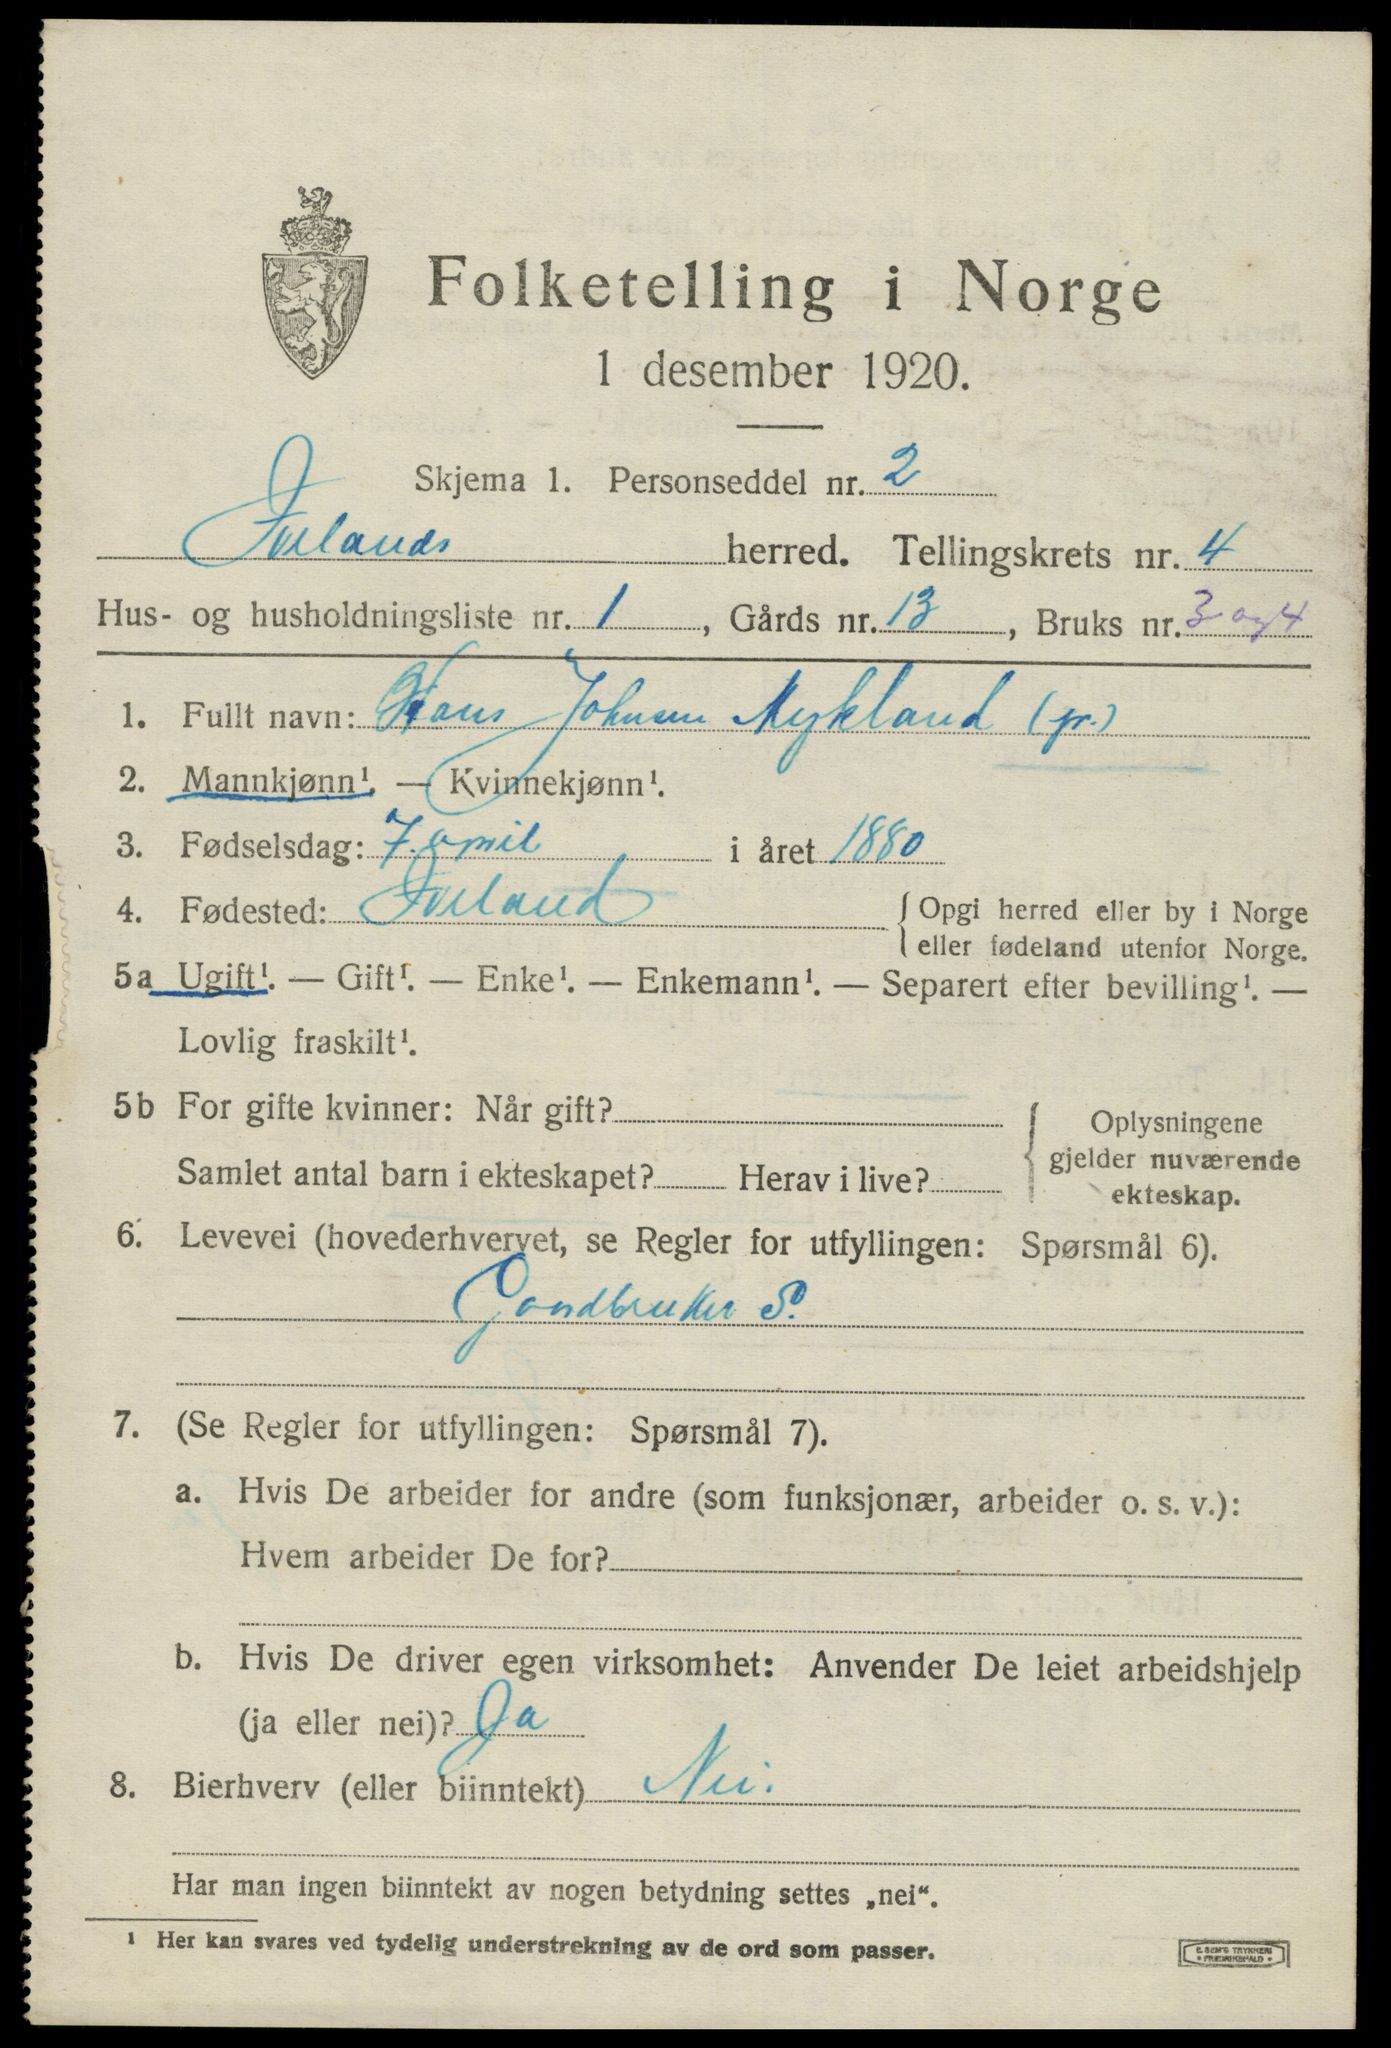 Folketelling i Norge
1 desember 1920.
Skjema 1. Personseddel nr. 2
Ivelands herred. Tellingskrets nr. 4
Hus- og husholdningsliste nr. 1, Gårds nr. 13, Bruks nr. 3 og 4
1. Fullt navn: Hans Johnsen Mykland (gr.)
2. Mannkjønn¹. — Kvinnekjønn¹.
3. Fødselsdag: 7. april i året 1880
4. Fødested: Iveland { Opgi herred eller by i Norge
eller fødeland utenfor Norge.
5a Ugift¹. — Gift¹. — Enke¹. — Enkemann¹. — Separert efter bevilling¹. —
Lovlig fraskilt¹.
5b For gifte kvinner: Når gift? { Oplysningene
gjelder nuværende
Samlet antal barn i ekteskapet? Herav i live?
ekteskap.
6. Levevei (hovederhvervet, se Regler for utfyllingen: Spørsmål 6).
Gaardbruker S.
7. (Se Regler for utfyllingen: Spørsmål 7).
a. Hvis De arbeider for andre (som funksjonær, arbeider o. s. v.):
Hvem arbeider De for?
b. Hvis De driver egen virksomhet: Anvender De leiet arbeidshjelp
(ja eller nei)? Ja
8. Bierhverv (eller biinntekt) Nei.
Har man ingen biinntekt av nogen betydning settes „nei“.
¹ Her kan svares ved tydelig understrekning av de ord som passer.
E. SEM'S TRYKKERI
• FREDRIKSHALD •